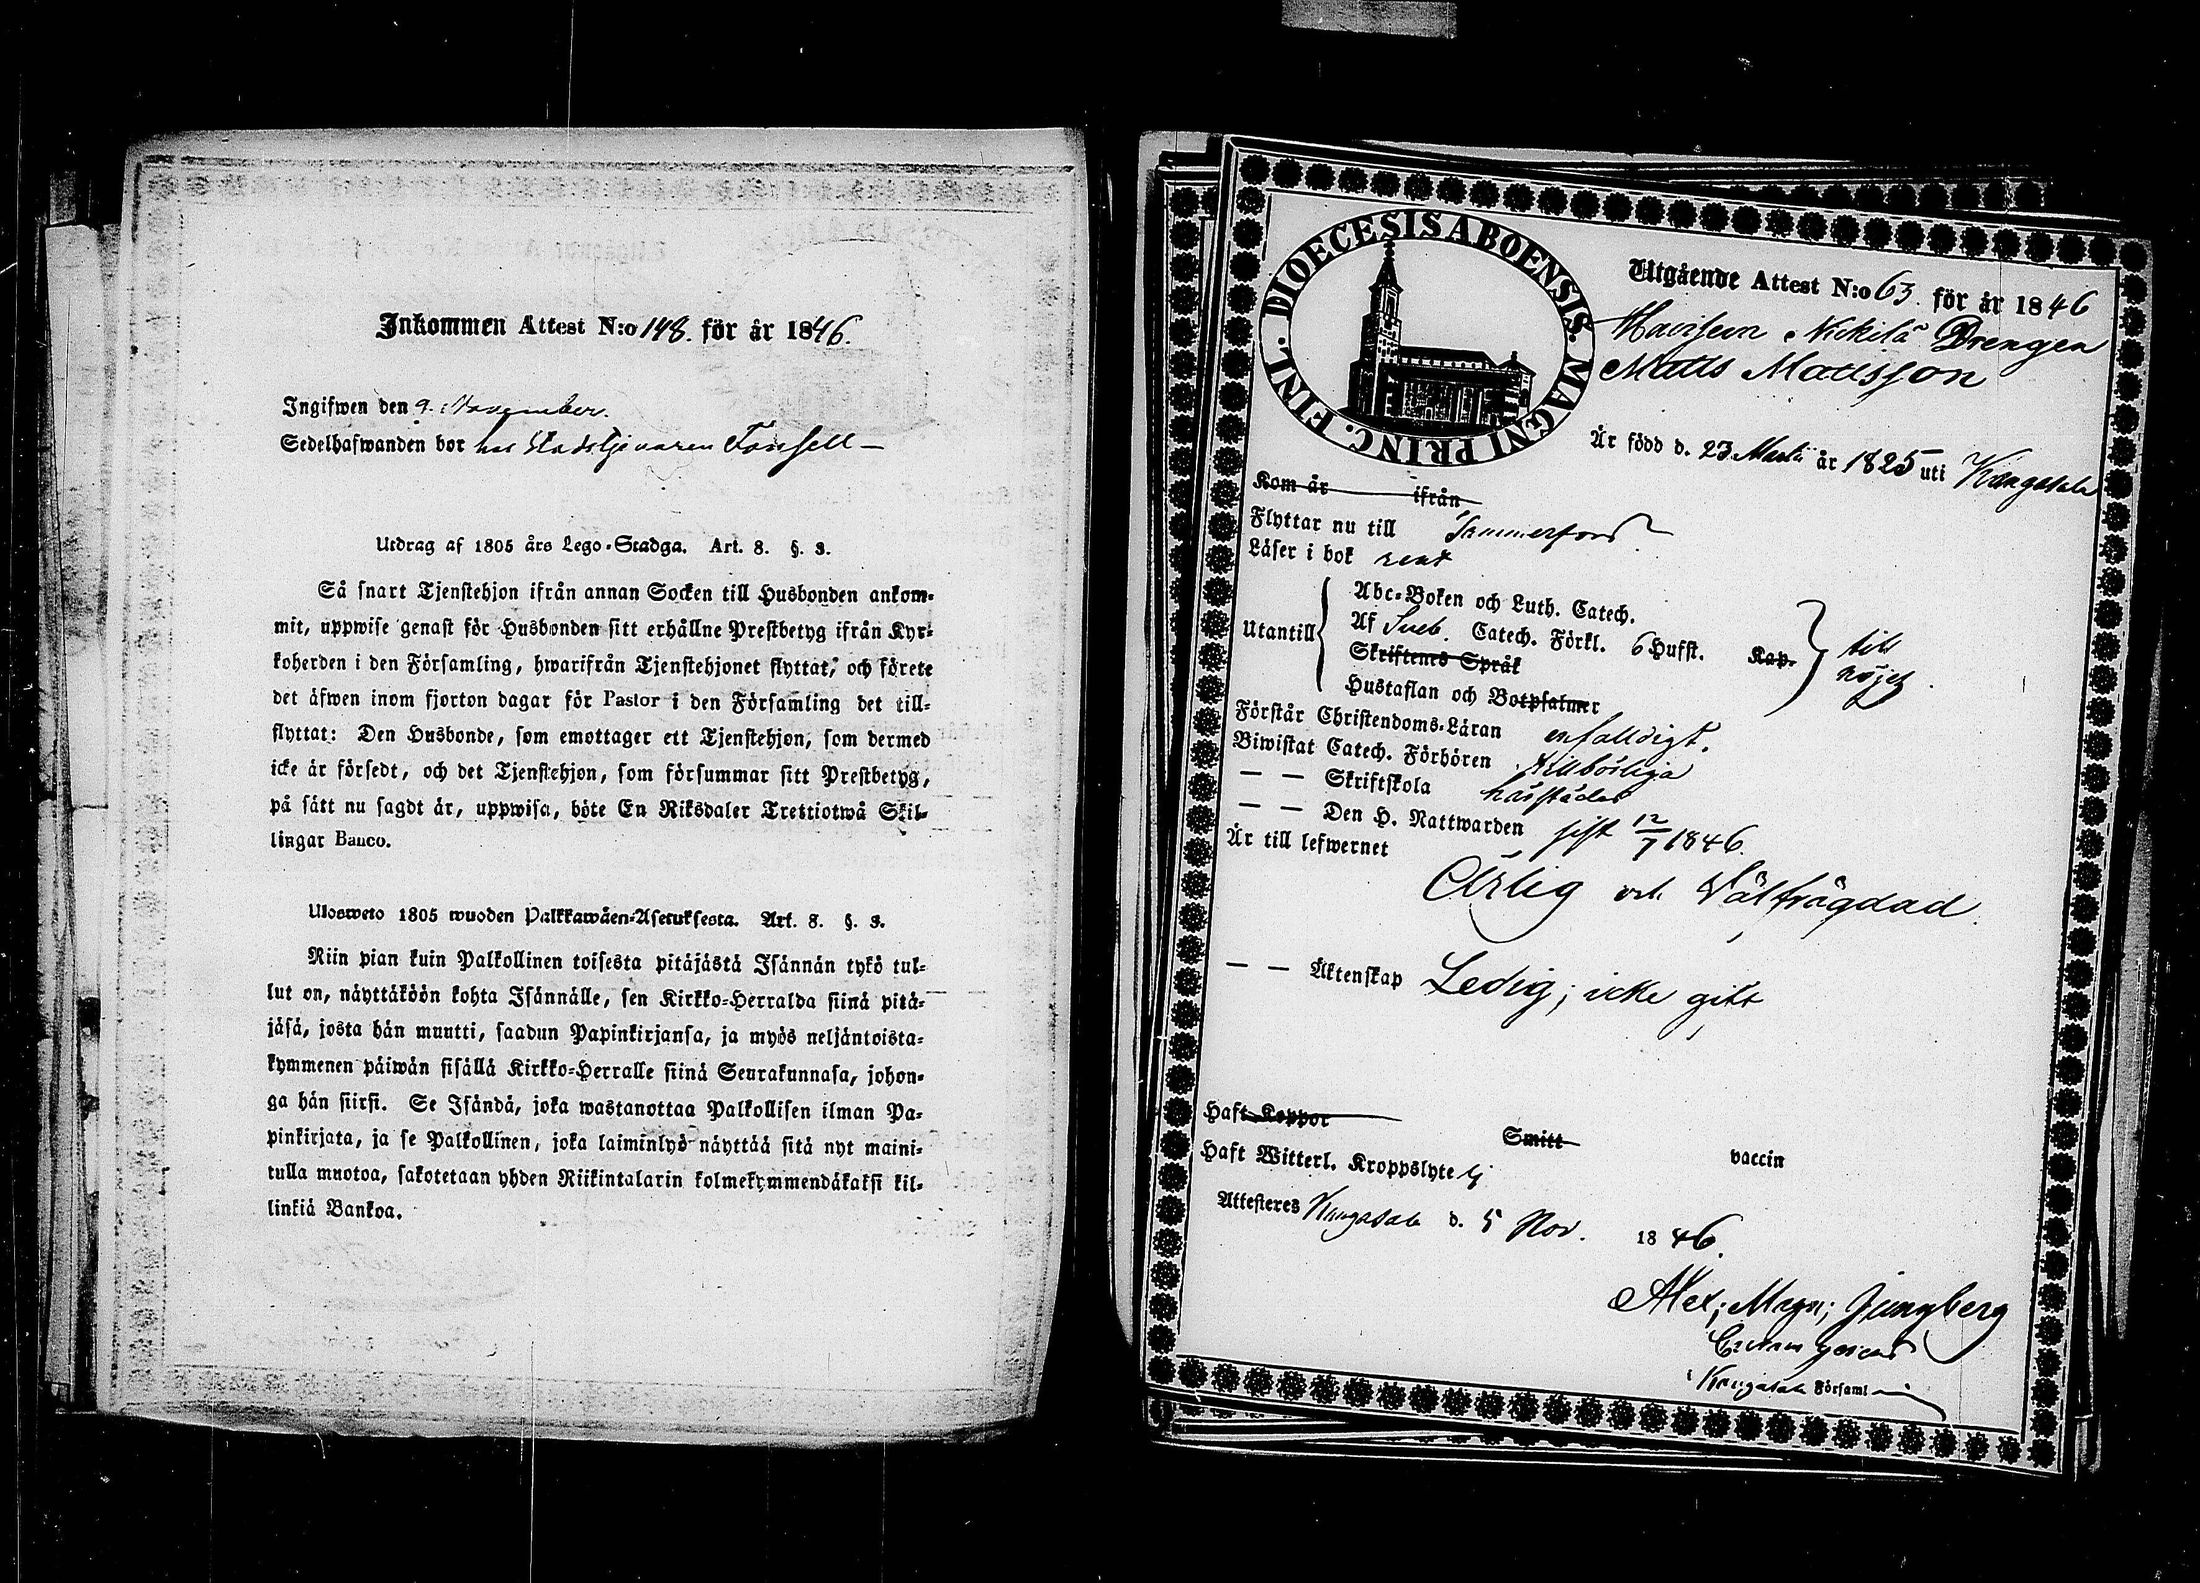 Inkommen Attest N:o 148. för år 1846.
Ingifwen den 9. November.
Sedelhafwanden bor hos Stadstjenaren Forsell —
Utdrag af 1805 års Lego-Stadga. Art. 8. §. 3.
Så snart Tjenstehjon ifrån annan Socken till Husbonden ankom-
mit, uppwise genast för Husbonden sitt erhållne Prestbetyg ifrån Kyr-
koherden i den Församling, hwarifrån Tjenstehjonet flyttat, och förete
det äfwen inom fjorton dagar för Pastor i den Församling det till-
flyttat: Den Husbonde, som emottager ett Tjenstehjon, som dermed
icke är försedt, och det Tjenstehjon, som försummar sitt Prestbetyg,
på sätt nu sagdt är, uppwisa, böte En Riksdaler Trettiotwå Skil-
lingar Banco.
Ulosweto 1805 wuoden Palkkawäen-Asetuksesta. Art. 8. §. 3.
Niin pian kuin Palkollinen toisesta pitäjästä Isännän tykö tul-
lut on, näyttäköön kohta Isännälle, sen Kirkko-Herralda siinä pitä-
jäsä, josta hän muutti, saadun Papinkirjansa, ja myös neljäntoista-
kymmenen päiwän sisällä Kirkko-Herralle siinä Seurakunnasa, johon-
ga hän siirsi. Se Isändä, joka wastanottaa Palkollisen ilman Pa-
pinkirjata, ja se Palkollinen, joka laiminlyö näyttää sitä nyt maini-
tulla muotoa, sakotetaan yhden Riikintalarin kolmekymmendäkaksi kil-
linkiä Bankoa.
DIOECESIS ABOENSIS. MAGNI PRINC. FINL.
Utgående Attest N:o 63. för år 1846
Nickilä Drengen
Matts Mattsson
Är född d. 23 Martii år 1825 uti Kangasala
Kom år ifrån
Flyttar nu till Tammerfors
Läser i bok rent
Utantill
Abc-Boken och Luth. Catech.
Af Sveb. Catech. Förkl. 6 Hufst. Kap.
Skriftenes Språk
Hustaflan och Botpsalmer
till
nöjes.
Förstår Christendoms-Läran enfalldigt.
Biwistat Catech. Förhören tillbörliga
— — Skriftskola härstädes
— — Den H. Nattwarden sist 12/7 1846.
Är till lefwernet
Ärlig och Välfrägdad.
— — Äktenskap Ledig; icke gift
Haft Koppor Smitt vaccin
Haft Witterl. Kroppslyte Ej
Attesteres Kangasala d. 5 Nov. 1846.
Alex; Magn; Ljungberg
Kangasala Församl